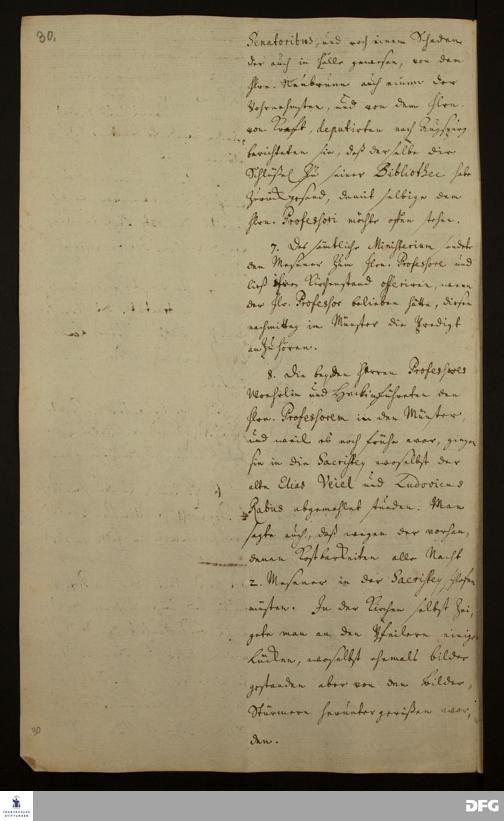 30.
Senatoribus, und noch einem Schaden
der auch in Halle gewesen, von dem
Hrn. Neubrunn auch einem der
Vornehmsten, und von dem Hrn.
von Krafft, deputirten nach Augspurg
berichteten sie, daß derselbe die
Schlüßel zu seiner Bibliothec habe
zurück gesand, damit selbige dem
Hrn. Professori möchte offen stehen.
7. Das sämtliche Ministerium sendete
den Mesener zum Hrn. Professore und
ließ ihren Kirchenstand offeriren, wenn
der Hr. Professor belieben hätte, diesen
nachmittag im Münster die Predigt
anzuhören.
8. Die beyden Herren Professores
Woehrlin und führeten den
Hrn. Professorem in den Münster,
und weil es noch frühe war, gingen
sie in die Sacristey woselbst der
alte Elias Veiel und Ludovicus
Rabus abgemahlet stunden. Man
sagte auch, daß wegen der vorhan,
denen Kostbarkeiten alle Nacht
2. Mesener in der Sacristey schlafen
müsten. In der Kirchen selbst zei,
gete man an den Pfeilern einige
Lücken, woselbst ehemals bilder
gestanden aber von den bilder,
Stürmern heruntergerißen wor,
den.
30
FRANCKESCHE
STIFTUNGEN
DFG